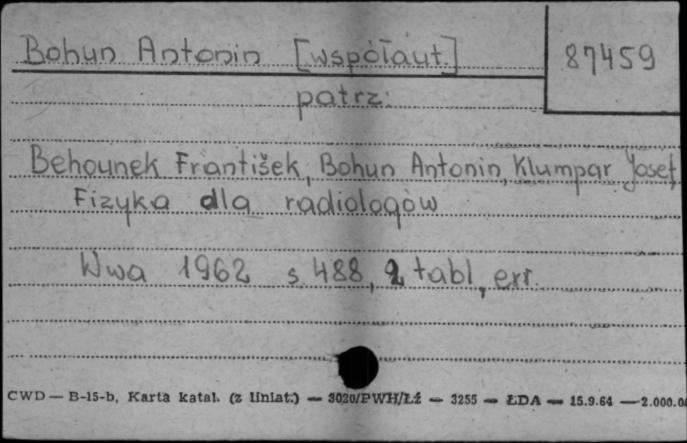 Bohun Antonin [współaut.] 87459
patrz:
Behounek František, Bohun Antonin, Klumpar Josef
Fizyka dla radiologów
Wwa 1962 s. 488, 2 tabl, err.
CWD — B-15-b, Karta katal. (z liniat.) — 3020/PWH/Łź — 3255 — ŁDA — 15.9.64 — 2.000.0